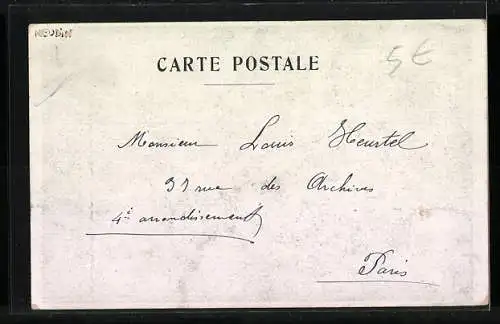 NEUDIN
5 €
CARTE POSTALE
Monsieur Louis Heurtel
37 rue des Archives
4e arrondissement
Paris